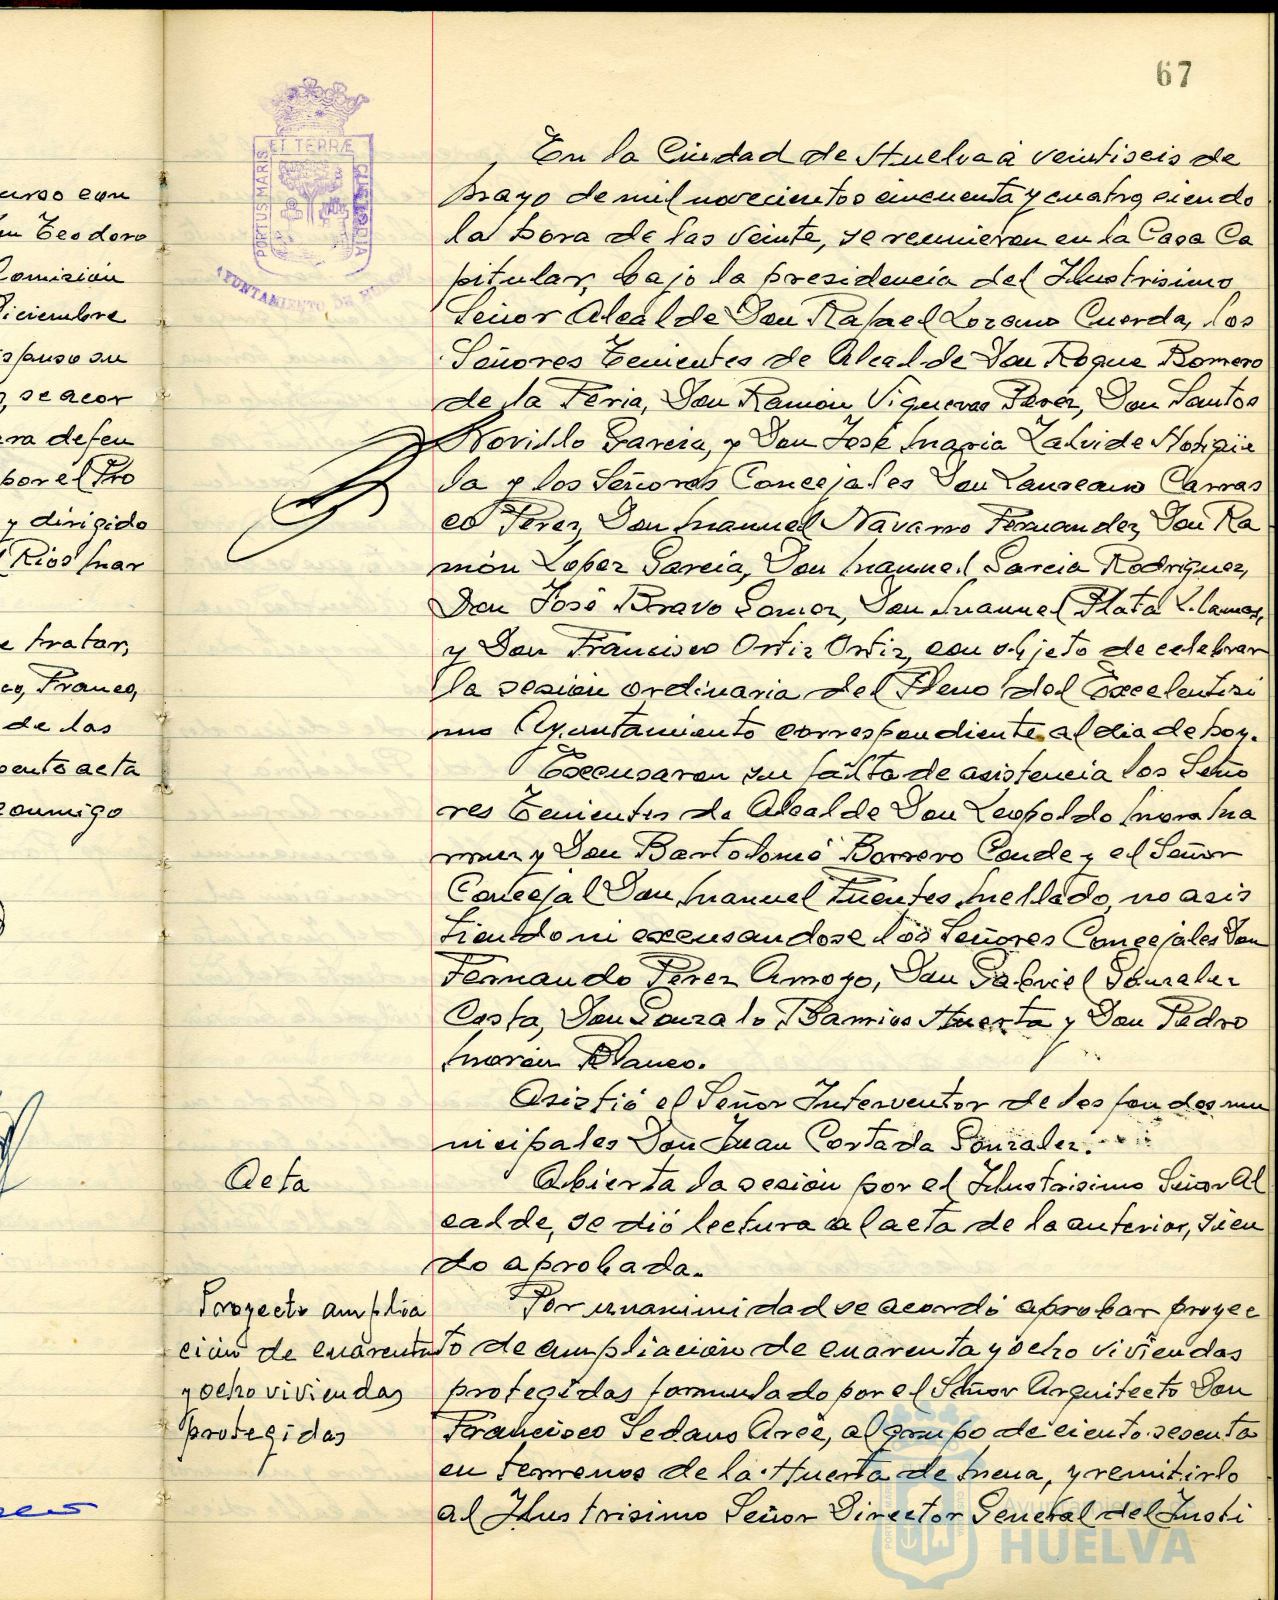 67
PORTUS MARIS
ET TERRÆ
CUSTODIA
AYUNTAMIENTO DE HUELVA
urso con
Teodoro
Comisión
Diciembre
ispuso su
se acor
ra defen
por el Pro
y dirigido
Rios Mar
e tratar,
Franco,
de las
sente acta
conmigo
En la Ciudad de Huelva a veintiseis de
Mayo de mil novecientos cincuenta y cuatro, siendo
la hora de las veinte, se reunieron en la Casa Ca
pitular, bajo la presidencia del Ilustrisimo
Señor Alcalde Don Rafael Lozano Cuerda, los
Señores Tenientes de Alcalde Don Roque Borrero
de la Feria, Don Ramón Vigueras Perez, Don Santos
Novillo Garcia, y Don José Maria Zalvide Motigüe
la y los Señores Concejales Don Laureano Carras
co Perez, Don Manuel Navarro Fernandez, Don Ra
món Lopez García, Don Manuel Garcia Rodriguez,
Don José Bravo Gomez, Don Manuel Plata Llamas,
y Don Francisco Ortiz Ortiz, con objeto de celebrar
la sesión ordinaria del Pleno del Excelentisi
mo Ayuntamiento correspondiente al dia de hoy.
Excusaron su falta de asistencia los Seño
res Tenientes de Alcalde Don Leopoldo Mora Ma
rmuz y Don Bartolomé Borrero Conde y el Señor
Concejal Don Manuel Fuentes Mellado, no asis
tiendo ni excusandose los Señores Concejales Don
Fernando Perez Arroyo, Don Gabriel Gonzalez
Costa, Don Gonzalo Barrios Huerta y Don Pedro
Morón Blanco.
Asistió el Señor Interventor de los fondos mu
nicipales Don Juan Cortada Gonzalez.
Acta
Abierta la sesión por el Ilustrisimo Señor Al
calde, se dió lectura al acta de la anterior, sien
do aprobada.
Proyecto amplia
ción de cuarenta
y ocho viviendas
protegidas
Por unanimidad se acordó aprobar proyec
to de ampliación de cuarenta y ocho viviendas
protegidas formulado por el Señor Arquitecto Don
Francisco Sedano Arce, al grupo de ciento sesenta
en terrenos de la Huerta de Mena, y remitirlo
al Ilustrisimo Señor Director General del Insti
Ayuntamiento de
HUELVA